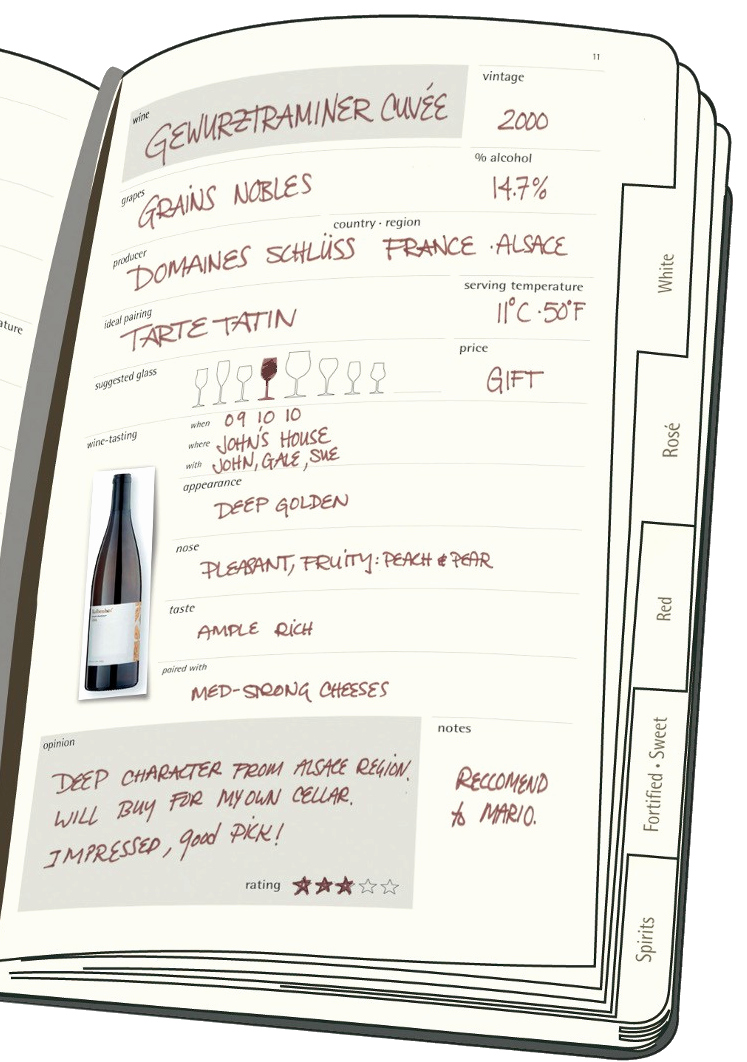 ature
11
wine
GEWURZTRAMINER CUVÉE
vintage
2000
grapes
GRAINS NOBLES
% alcohol
14.7%
producer
DOMAINES SCHLÜSS
country · region
FRANCE · ALSACE
ideal pairing
TARTE TATIN
serving temperature
11°C · 50°F
suggested glass
price
GIFT
wine-tasting
when 09 10 10
where JOHN'S HOUSE
with JOHN, GALE, SUE
appearance
DEEP GOLDEN
nose
PLEASANT, FRUITY: PEACH & PEAR
taste
AMPLE RICH
paired with
MED-STRONG CHEESES
opinion
DEEP CHARACTER FROM ALSACE REGION.
WILL BUY FOR MY OWN CELLAR.
IMPRESSED, good PICK!
rating
notes
RECCOMEND
to MARIO.
White
Rosé
Red
Fortified · Sweet
Spirits